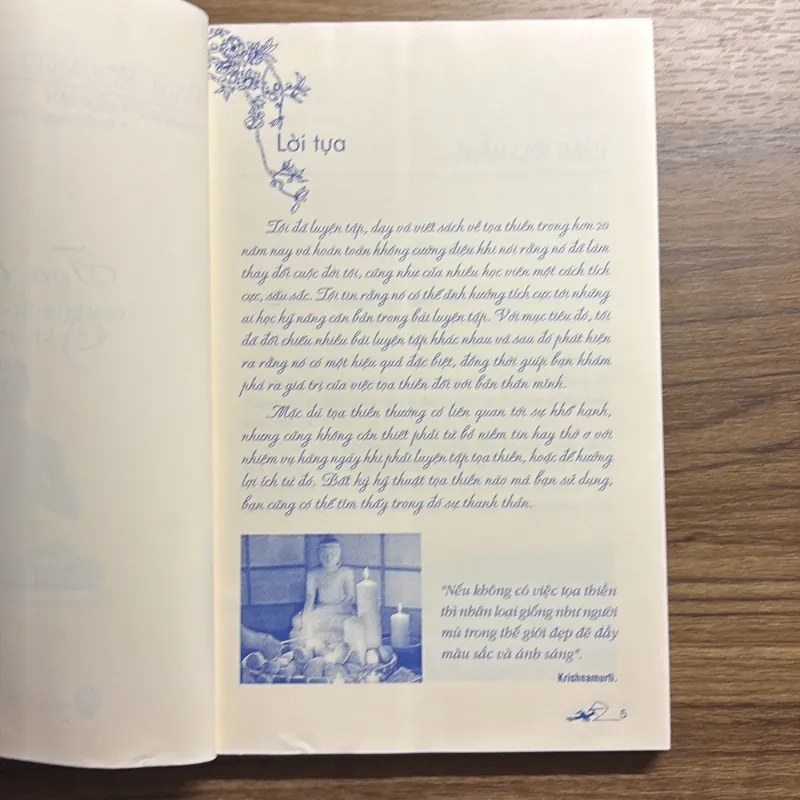 Lời tựa
Tôi đã luyện tập, dạy và viết sách về tọa thiền trong hơn 20
năm nay và hoàn toàn không cường điệu khi nói rằng nó đã làm
thay đổi cuộc đời tôi, cũng như của nhiều học viên một cách tích
cực, sâu sắc. Tôi tin rằng nó có thể ảnh hưởng tích cực tới những
ai học kỹ năng căn bản trong bài luyện tập. Với mục tiêu đó, tôi
đã đối chiếu nhiều bài luyện tập khác nhau và sau đó phát hiện
ra rằng nó có một hiệu quả đặc biệt, đồng thời giúp bạn khám
phá ra giá trị của việc tọa thiền đối với bản thân mình.
Mặc dù tọa thiền thường có liên quan tới sự khổ hạnh,
nhưng cũng không cần thiết phải từ bỏ niềm tin hay thờ ơ với
nhiệm vụ hàng ngày khi phải luyện tập tọa thiền, hoặc để hưởng
lợi ích từ đó. Bất kỳ kỹ thuật tọa thiền nào mà bạn sử dụng,
bạn cũng có thể tìm thấy trong đó sự thanh thản.
"Nếu không có việc tọa thiền
thì nhân loại giống như người
mù trong thế giới đẹp đẽ đầy
màu sắc và ánh sáng".
Krishnamurti.
5